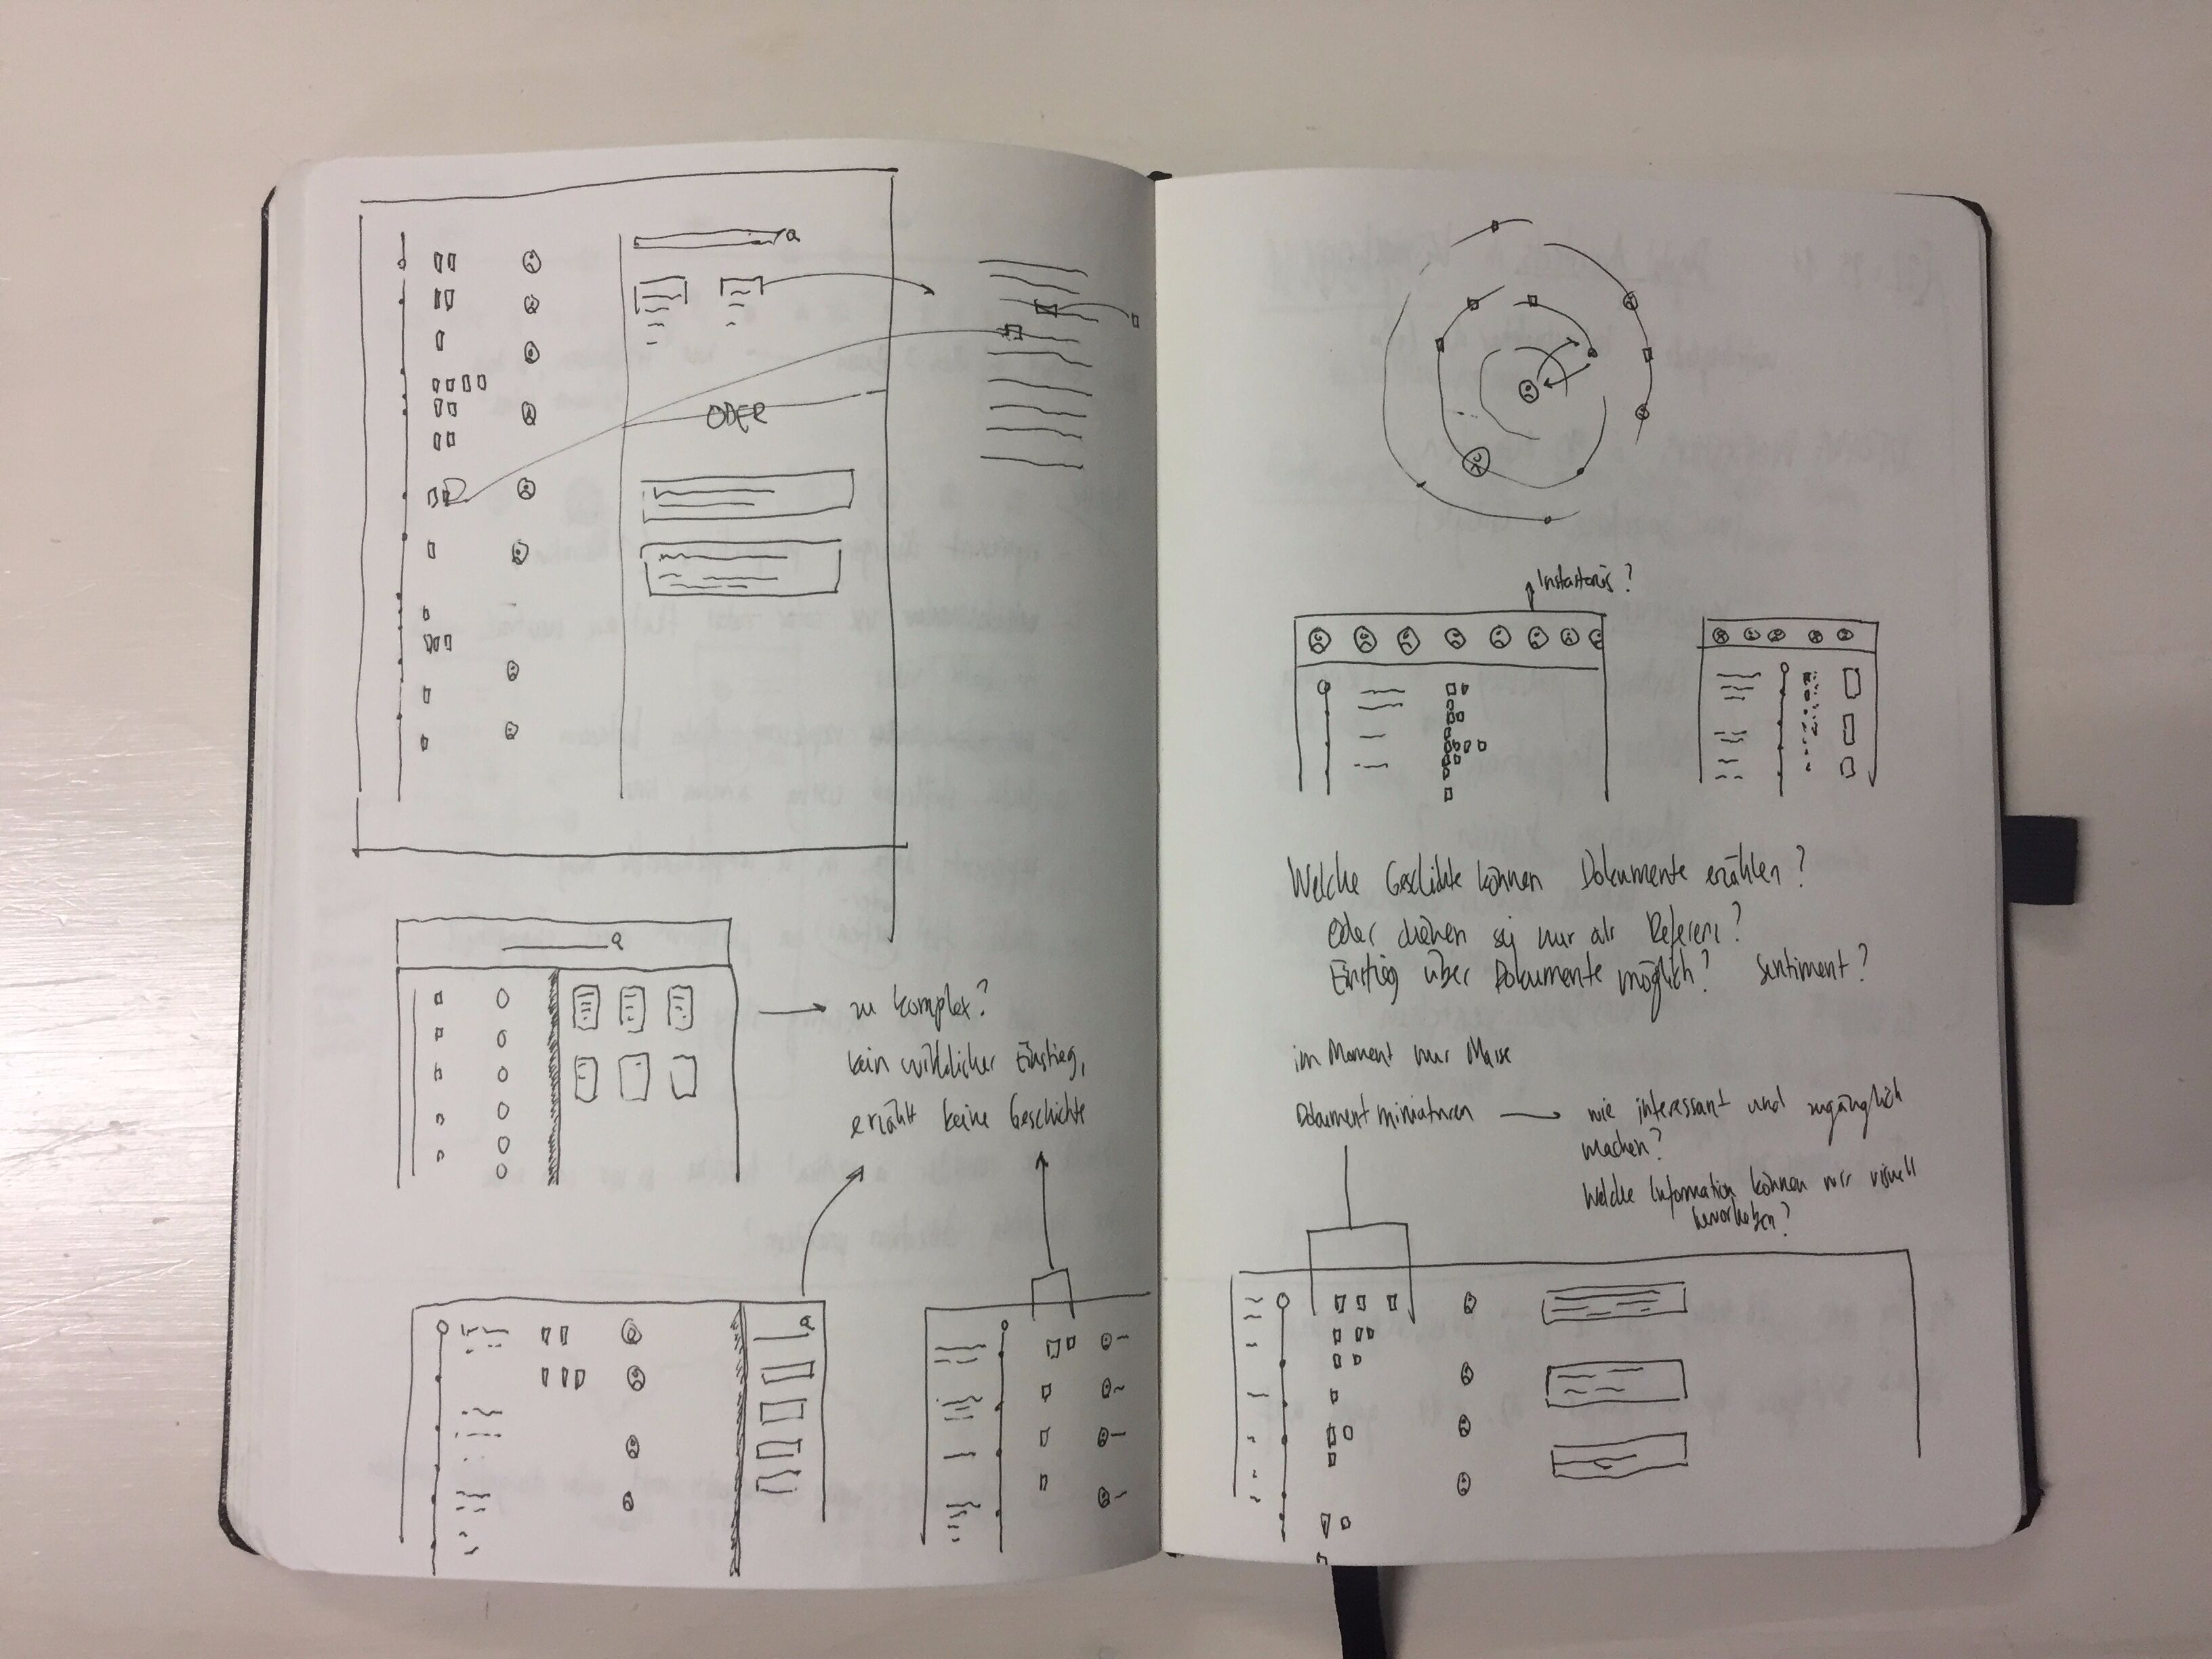 ODER
zu komplex?
kein wirklicher Einstieg,
erzählt keine Geschichte
Instastories?
Welche Geschichte können Dokumente erzählen?
Oder dienen sie nur als Referenz?
Einstieg über Dokumente möglich? Sentiment?
im Moment nur Masse
Dokument miniaturen
wie interessant und zugänglich
machen?
Welche Information können wir visuell
hervorheben?